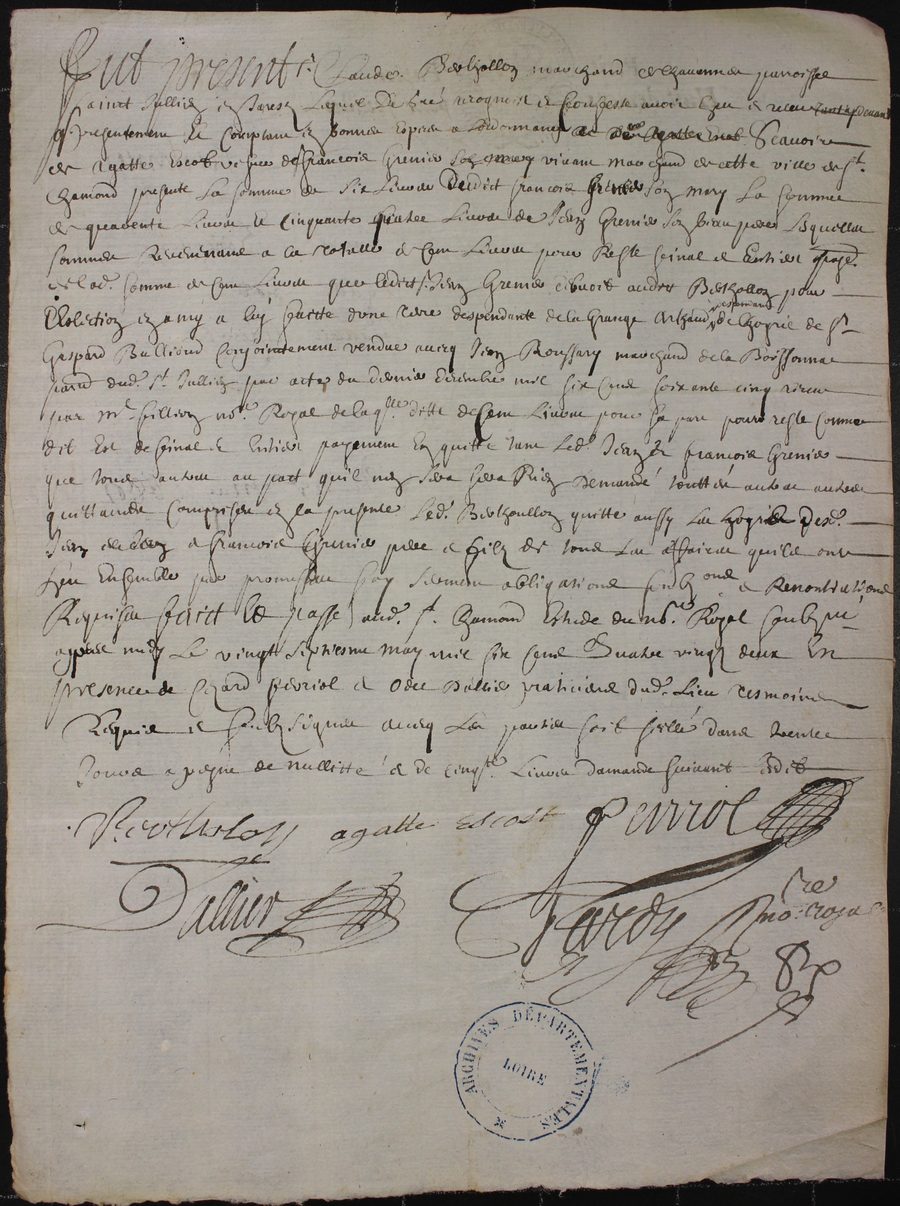 Fut present sr. Claude Bertholloz marchand de Chavannes parroisse
Sainct Jullien en Jarest Lequel de gré recognoit et confesse avoir heu et receu tant cy devant
que presentement et comptant en bonnes especes a contantement Scavoir
de Agatte Escot vefve de francois Grenier son mary vivant marchand de cette ville de St.
Chamond presente La somme de six Livres dudict francois Grenier son mary La somme
de quarente Livres et Cinquante quatre Livres de Jean Grenier son beau pere Lesquelles
sommes Reviennent a la totalle de Cent Livres pour Reste final et Entier payé.
de lad. somme de Cent Livres que ledict sr. Jean Grenier debvoit audit Bertholloz pour
a luy faicte d'une terre despendante de la Grange de St.
Gaspard Bulliond Conjointement vendue avecq Jean Roussary marchand de la Boissonna
parroisse dud. St. Jullien par acte du dernier decembre mil six cent soixante cinq receu
par Me. fillion nore. Royal de laqlle. ditte de Cent Livres pour sa part pour reste comme
dit Est de final et Entier payement En quitte tant Led. Jean et francois Grenier
que tous autres au pact qu'il n'en sera fera Rien demandé touttes autres
quittances Comprises en la presente Led. Bertholloz quitte aussy Les hoyrs desd.
Jean et francois Grenier pere et filz de tous Les affaires qu'ils ont
heu Ensemble par promesses foy serment obligations soubzons. et Renontiations
Requises faict et passé aud. St. Chamond Estude du nore. Royal soubzné
appres midy Le vingt septiesme may mil six cent quatre vingtz deux En
presence de Cezard ferriol et Odet Dallier praticiens dud. Lieu tesmoins
Requis et soubzsignes avecq Les parties soit scellé dans trente
Jours a peyne de nullitté et de cinqte. Livres d'amande suivant Ledit
Bertholoz agatte escot ferriol
Dallier
Hardy nore royal
ARCHIVES DÉPARTEMENTALES
LOIRE